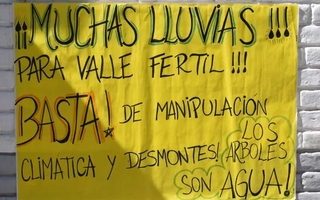 ¡¡MUCHAS LLUVIAS!!!
PARA VALLE FERTIL!!!
BASTA! DE MANIPULACIÓN
CLIMATICA Y DESMONTES! LOS ARBOLES
SON AGUA!